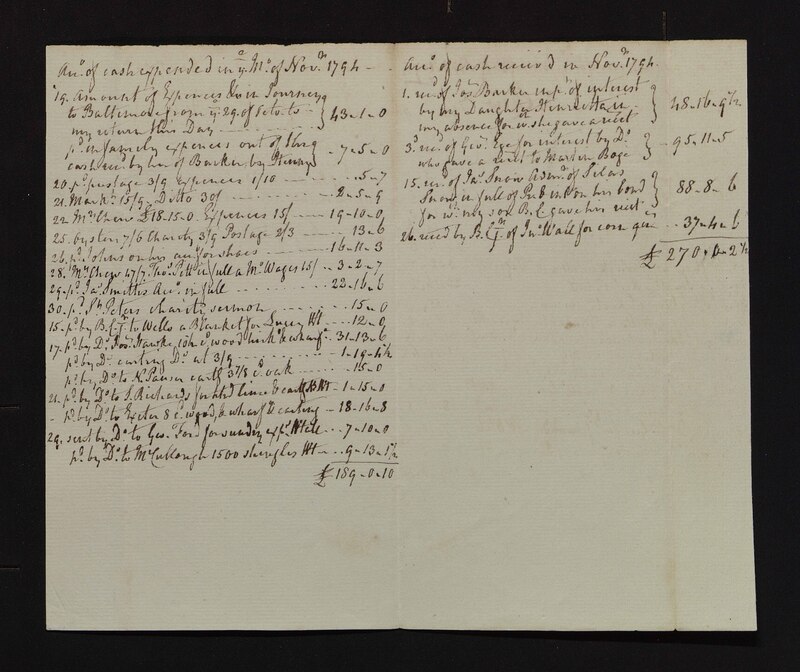 Acc.t of cash expended in ye Mo. of Nov.r 1794
19. Amount of Expences &c in Journey
to Baltimore from ye 29. of Octo. to
my return this Day 43-1-0
p.d in family expences out of
cash rec.d by her of Barker by Henny 7-5-0
20. p.d postage 3/9 Expences 1/10 -5-7
21. Mark.t 15/9. Ditto 30/ 2-5-9
22. Mrs Chew £18-15-0. Expences 15/ 19-10-0
25. oysters 7/6 Charity 3/9 Postage 2/3 13-6
26. p.d Johnson his acc. for shoes 16-11-3
28. Mrs Chew 47/7 in full a Mo. Wages 15/ 3-2-7
29. p.d Ja.s Smith's Acc.t in full 22-16-6
30. p.d St Peters charity sermon -15-0
15. p.d by B.C.J.r to Wells a Blanket for Ht -12-0
17. p.d by D.o Jos. wood & wharf.e 31-13-6
p.d by D.o carting D.o at 3/9 1-19-4½
p.d by D.o to N. cart.g 3 7/8 C. oak -15-0
21. p.d by D.o to J. Richards for lime & cart.g Ht 1-15-0
- p.d by D.o to Exeter 8 c. wood, & wharf.e & carting 18-16-8
29. sent by D.o to Geo. Ford for sundry exp.s 7-10-0
p.d by D.o to McCullough 1500 shingles Ht 9-13-1½
£189-0-10
Acc.t of cash received in Nov.r 1794
1. rec.d of Jos. Barker in p.t of interest
by my Daughter Henrietta in
my absence for wch. she gave a rec.t 48-16-9½
3. rec. of Geo. for interest by D.o
who gave a rec.t to Martin 95-11-5
15. rec. of Ja.s Snow Adm.r of Silas
Snow in full of P & int on his bond
for wch. my son B.C. gave her rec.t 88-8-6
26. rec.d by B.C.J.r of Jn.o Wall for corn 37-4-6
£270-0-2½